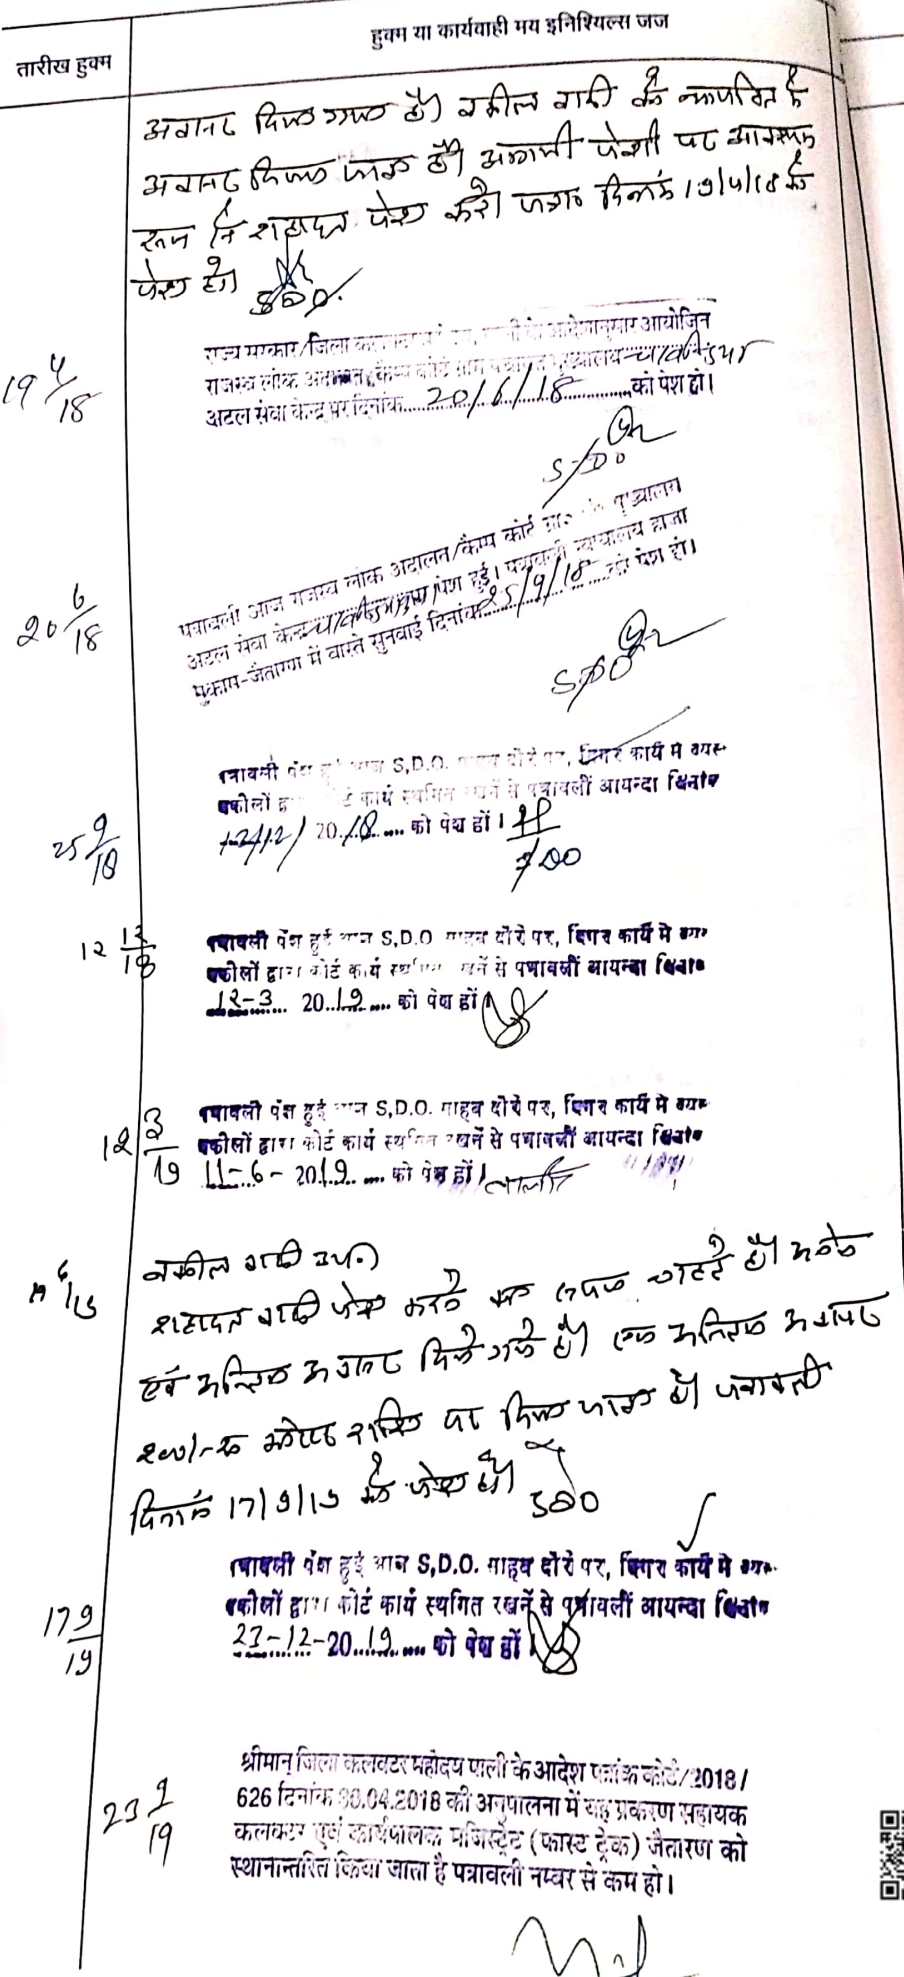 हुक्म या कार्यवाही मय इनिशियल्स जज
तारीख हुक्म
अवसर दिया गया है। वकील वादी को
अवसर दिया जाता है। आगामी पेशी पर आवश्यक
रूप से शहादत पेश करें। पत्रा० दिनांक 19/4/18 को
पेश हो।
SDO.
19 4/18
राज्य सरकार/जिला आदेशानुसार आयोजित
राजस्व लोक अदालत/कैम्प कोर्ट ग्राम पंचायत मुख्यालय
अटल सेवा केन्द्र पर दिनांक 20/6/18 को पेश हो।
SDO
20 6/18
पत्रावली आज राजस्व लोक अदालत/कैम्प कोर्ट ग्रा० मुख्यालय
अटल सेवा केन्द्र पेश हुई। पत्रावली न्यायालय हाजा
मुकाम-जैतारण में वास्ते सुनवाई दिनांक 25/9/18 को पेश हो।
SDO
25 9/18
पत्रावली पेश हुई आज S.D.O. दौरे पर, दिगर कार्य मे व्यस्त
वकीलों द्वारा कोर्ट कार्य स्थगित रखनें से पत्रावलीं आयन्दा दिनांक
12/12/ 2018 को पेश हों।
12 12/18
पत्रावली पेश हुई आज S.D.O साहब दौरे पर, दिगर कार्य मे व्यस्त
वकीलों द्वारा कोर्ट कार्य स्थगित रखनें से पत्रावलीं आयन्दा दिनांक
12-3 2019 को पेश हों
12 3/19
पत्रावली पेश हुई आज S.D.O. साहब दौरे पर, दिगर कार्य मे व्यस्त
वकीलों द्वारा कोर्ट कार्य स्थगित रखनें से पत्रावलीं आयन्दा दिनांक
11-6-2019 को पेश हों।
11 6/19
वकील वादी उप०
शहादत वादी पेश करने का समय चाहते है।
एवं अन्तिम अवसर दिये गये है। एक अन्तिम अवसर
200/-रू कोस्ट राशि पर दिया जाता है। पत्रावली
दिनांक 17/9/19 को पेश हो।
SDO
17 9/19
पत्रावली पेश हुई आज S.D.O. साहब दौरे पर, दिगर कार्य मे व्यस्त
वकीलों द्वारा कोर्ट कार्य स्थगित रखनें से पत्रावलीं आयन्दा दिनांक
23-12-2019 को पेश हों
23 9/19
श्रीमान् जिला कलक्टर महोदय पाली के आदेश पत्रांक कोर्ट/2018/
626 दिनांक 30.04.2018 की अनुपालना में यह प्रकरण सहायक
कलक्टर एवं कार्यपालक मजिस्ट्रेट (फास्ट ट्रेक) जैतारण को
स्थानान्तरित किया जाता है पत्रावली नम्बर से कम हो।